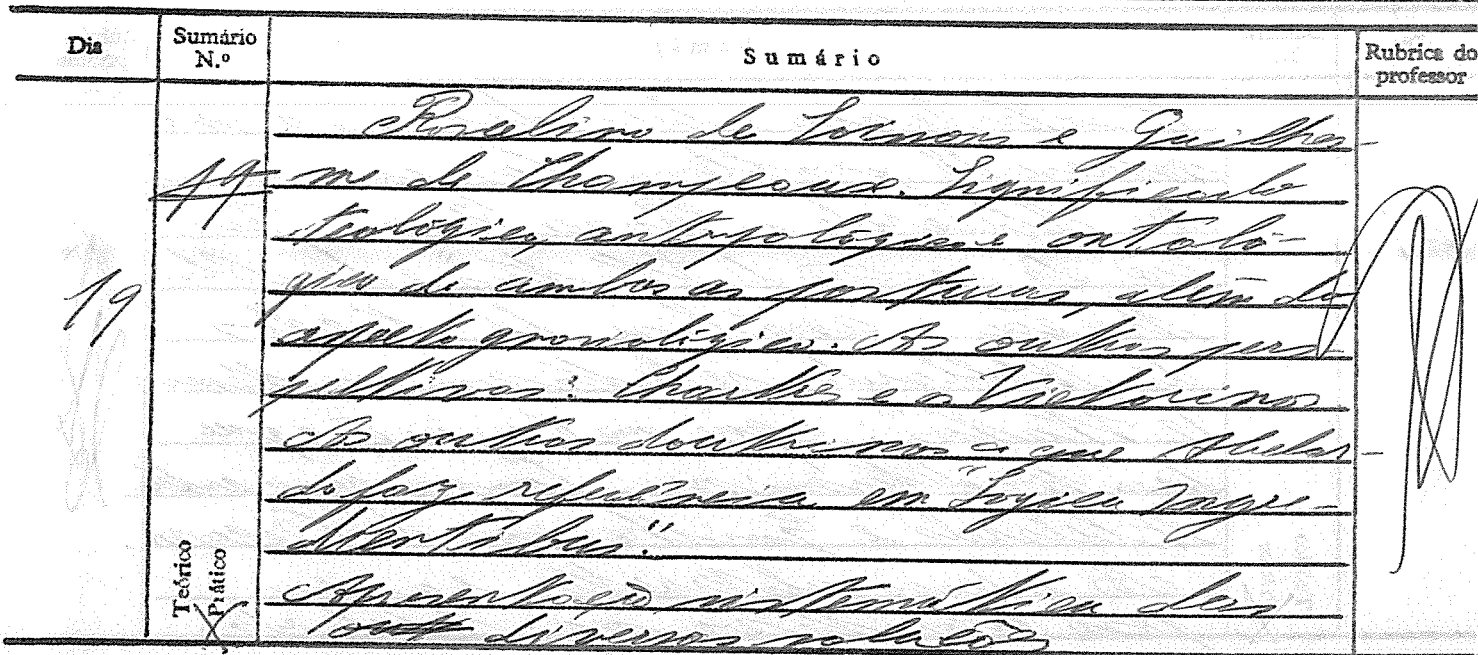 Dia
Sumário N.º
Sumário
Rubrica do professor
Roscelino de e Guilher-
19
49
me de Champeaux. Significado
teológico, antropológico e ontoló-
gico de ambas as posturas, além do
aspecto gnosiológico. As outras pers-
pectivas: Chartres e os Victorinos
As outras doutrinas a que Abelar-
do faz referência em "Logica Ingre-
dientibus".
Teórico
Prático
Apresentação sistemática das
diversas soluções